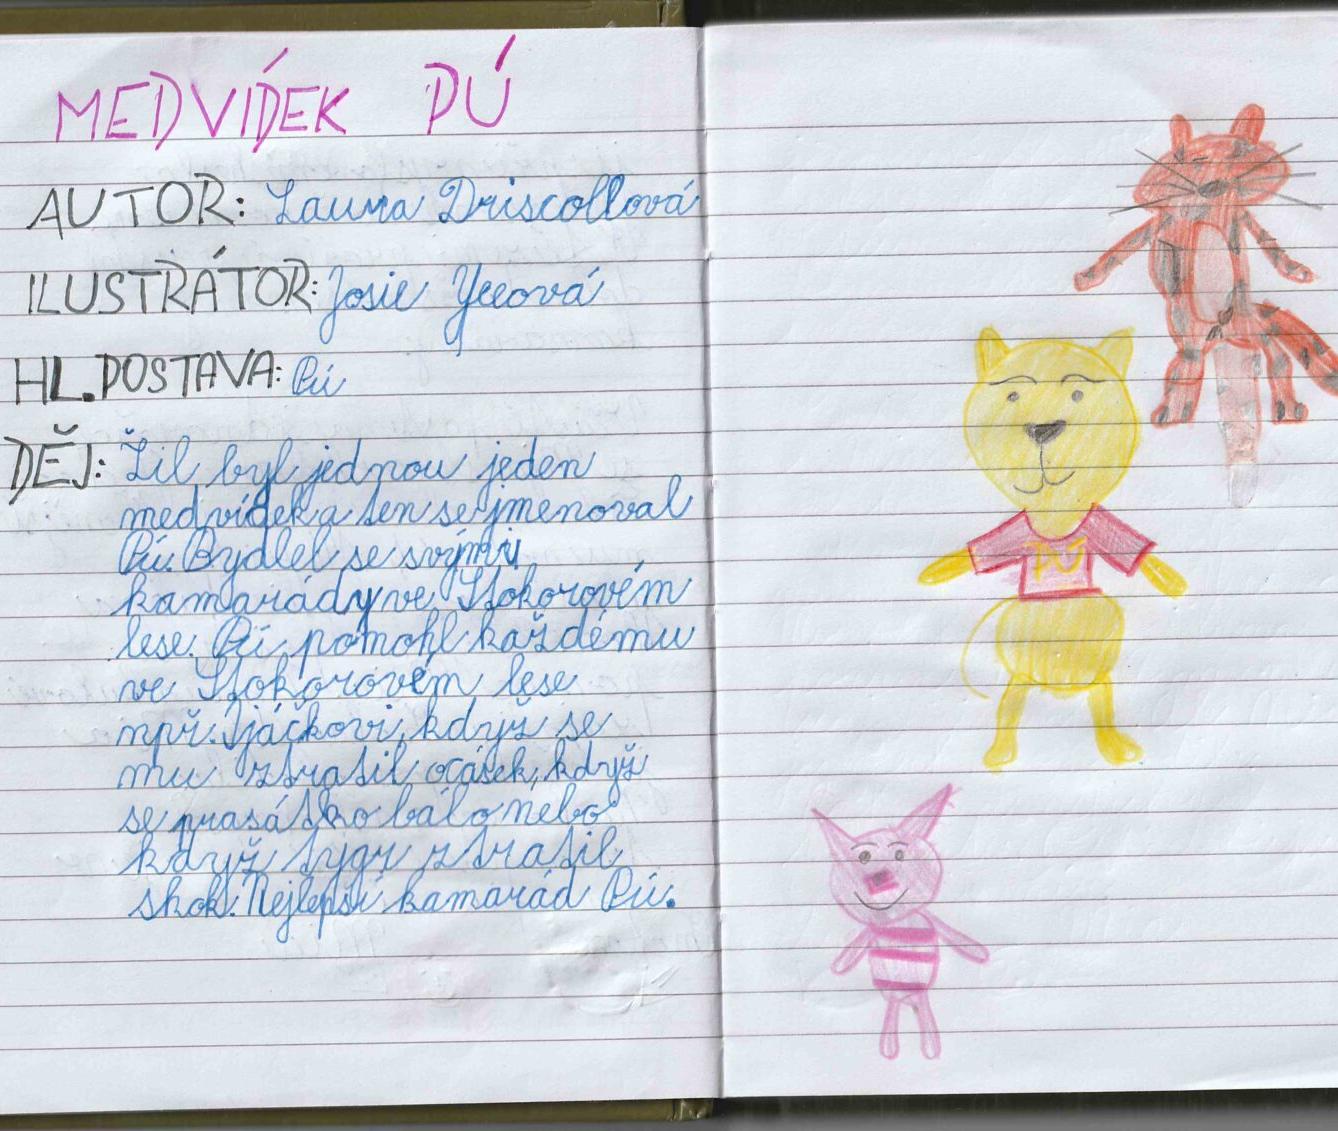 MEDVÍDEK PÚ
AUTOR: Laura Driscollová
ILUSTRÁTOR: Josie Yeeová
HL. POSTAVA: Pú
DĚJ: Žil byl jednou jeden
medvídek a ten se jmenoval
Pú. Bydlel se svými
kamarády ve Stokorovém
lese. Pú pomohl každému
ve Stokorovém lese
např. Ijáčkovi, když se
mu ztratil ocásek, když
se prasátko bálo nebo
když tygr ztratil
skok. Nejlepší kamarád Pú.
PÚ